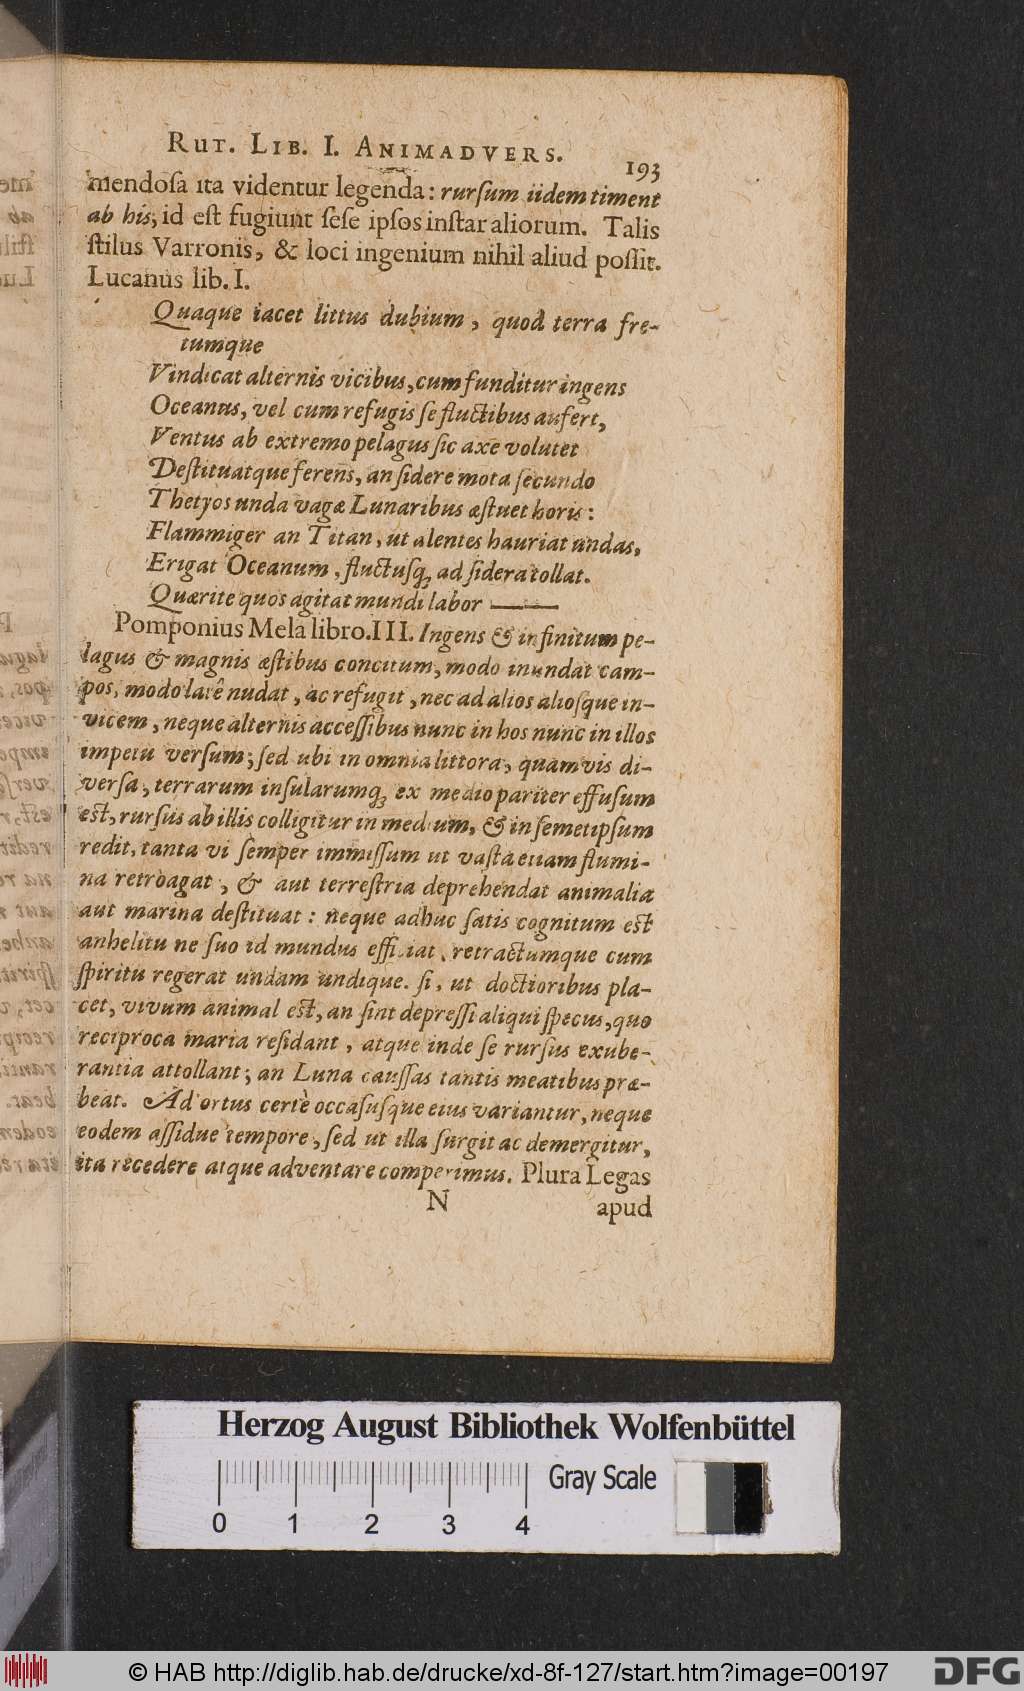 RUT. LIB. I. ANIMADVERS. 193
mendoſa ita videntur legenda: rurſum iidem timent
ab his, id eſt fugiunt ſeſe ipſos inſtar aliorum. Talis
ſtilus Varronis, & loci ingenium nihil aliud poſſit.
Lucanus lib. I.
Quaque iacet littus dubium, quod terra fre-
tumque
Vindicat alternis vicibus, cum funditur ingens
Oceanus, vel cum refugis ſe fluctibus aufert,
Ventus ab extremo pelagus ſic axe volutet
Deſtituatque ferens, an ſidere mota ſecundo
Thetyos unda vagæ Lunaribus æſtuet horis:
Flammiger an Titan, ut alentes hauriat undas,
Erigat Oceanum, fluctuſq; ad ſidera tollat.
Quærite quos agitat mundi labor ——
Pomponius Mela libro. III. Ingens & infinitum pe-
lagus & magnis æſtibus concitum, modo inundat cam-
pos, modo latê nudat, ac refugit, nec ad alios alioſque in-
vicem, neque alternis acceſſibus nunc in hos nunc in illos
impetu verſum; ſed ubi in omnia littora, quamvis di-
verſa, terrarum inſularumq; ex medio pariter effuſum
eſt, rurſus ab illis colligitur in medium, & in ſemetipſum
redit, tanta vi ſemper immiſſum ut vaſta etiam flumi-
na retroagat, & aut terreſtria deprehendat animalia
aut marina deſtituat: neque adhuc ſatis cognitum eſt
anhelitu ne ſuo id mundus efficiat, retractumque cum
ſpiritu regerat undam undique. ſi, ut doctioribus pla-
cet, vivum animal eſt, an ſint depreſſi aliqui ſpecus, quo
reciproca maria reſidant, atque inde ſe rurſus exube-
rantia attollant; an Luna cauſſas tantis meatibus præ-
beat. Ad ortus certè occaſuſque eius variantur, neque
eodem aſſidue tempore, ſed ut illa ſurgit ac demergitur,
ita recedere atque adventare comperimus. Plura Legas
N apud
Herzog August Bibliothek Wolfenbüttel
Gray Scale
0 1 2 3 4
© HAB http://diglib.hab.de/drucke/xd-8f-127/start.htm?image=00197 DFG